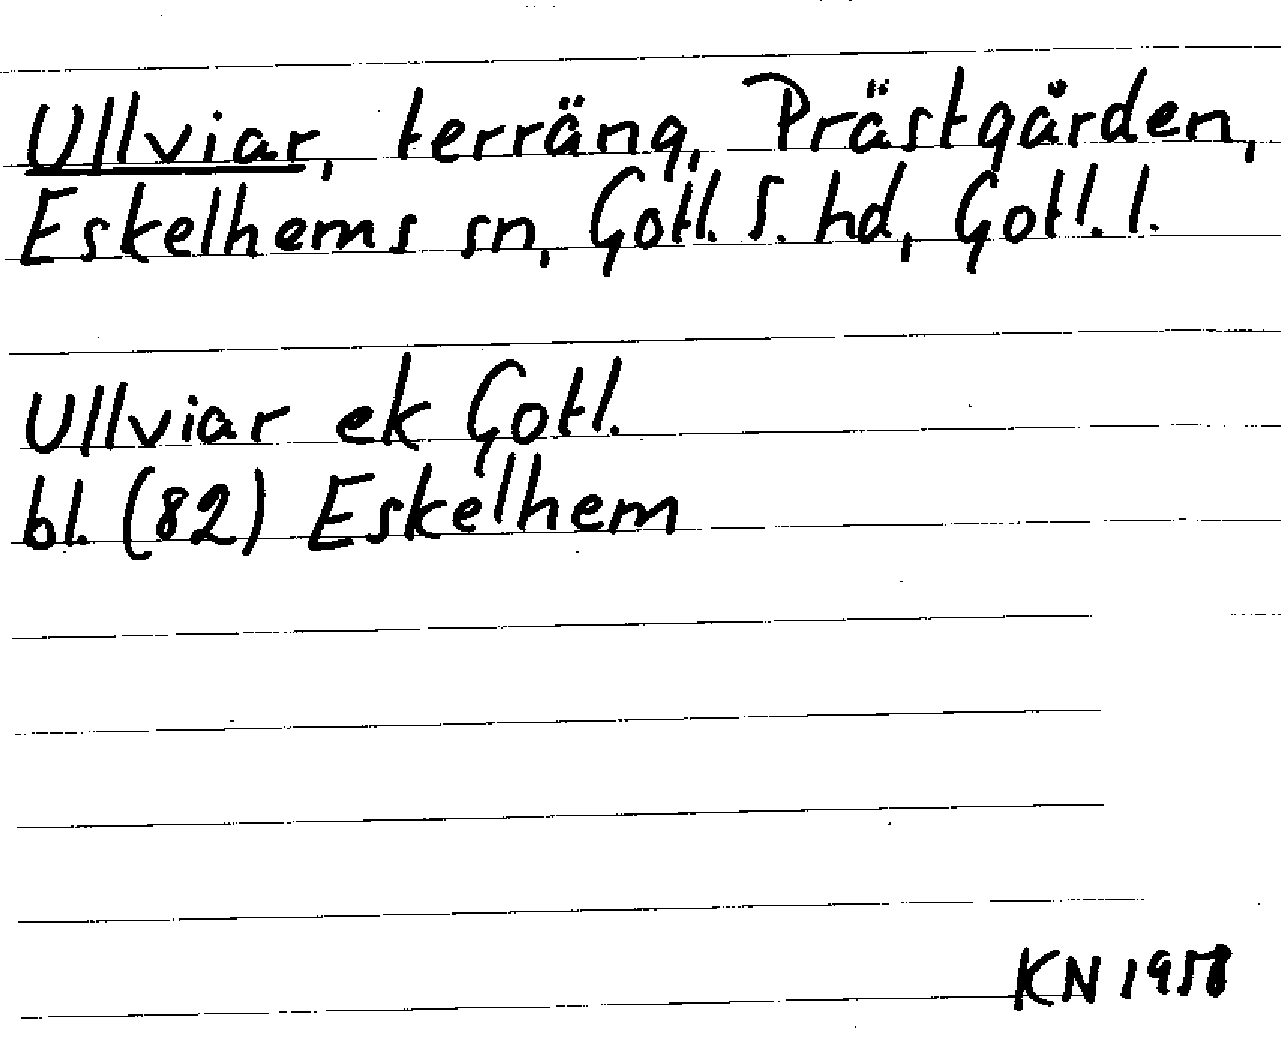 Ullviar, terräng, Prästgården,
Eskelhems sn, Gotl. S. hd, Gotl. l.
Ullviar ek Gotl.
bl. (82) Eskelhem
KN 1958